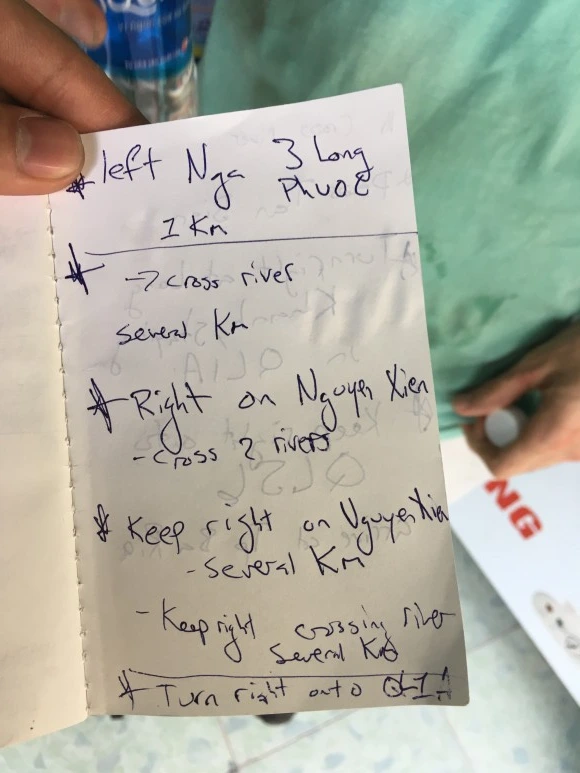 * left Nga 3 Long
Phuoc
1 Km
* → cross river
several Km
* Right on Nguyen Xien
- cross 2 rivers
* Keep right on Nguyen Xien
- Several Km
- Keep right crossing river
Several Km
* Turn right onto QL1A
NG